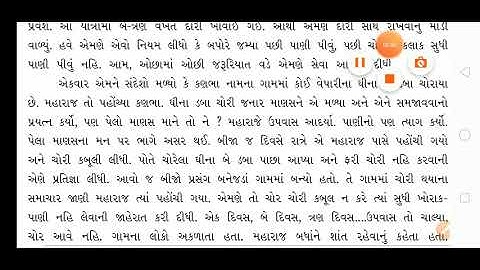 પ્રવેશ. આ યાત્રામાં બે-ત્રણ વખત દારી ખોવાઈ ગઈ. આથી એમણે દારી સાથે રાખવાનું માંડી
વાળ્યું. હવે એમણે એવો નિયમ લીધો કે બપોરે જમ્યા પછી પાણી પીવું, પછી ચો કલાક સુધી
પાણી પીવું નહિ. આમ, ઓછામાં ઓછી જરૂરિયાત વડે એમણે સેવા આ દીધી
એકવાર એમને સંદેશો મળ્યો કે કણભા નામના ગામમાં કોઈ વેપારીના ઘીના ડબા ચોરાયા
છે. મહારાજ તો પહોંચ્યા કણભા. ઘીના ડબા ચોરી જનાર માણસને એ મળ્યા અને એને સમજાવવાનો
પ્રયત્ન કર્યો, પણ પેલો માણસ માને તો ને ? મહારાજે ઉપવાસ આદર્યા. પાણીનો પણ ત્યાગ કર્યો.
પેલા માણસના મન પર ભાગે અસર થઈ. બીજા જ દિવસે રાત્રે એ મહારાજ પાસે પહોંચી ગયો
અને ચોરી કબૂલી લીધી. પોતે ચોરેલા ઘીના બે ડબા પાછા આપ્યા અને ફરી ચોરી નહિ કરવાની
એણે પ્રતિજ્ઞા લીધી. આવો જ બીજો પ્રસંગ બનેજડાં ગામમાં બન્યો હતો. તે ગામમાં ચોરી થયાના
સમાચાર જાણી મહારાજ ત્યાં પહોંચી ગયા. એમણે તો ચોર ચોરી કબૂલ ન કરે ત્યાં સુધી ખોરાક-
પાણી નહિ લેવાની જાહેરાત કરી દીધી. એક દિવસ, બે દિવસ, ત્રણ દિવસ...ઉપવાસ તો ચાલ્યા,
ચોર આવે નહિ. ગામના લોકો અકળાતા હતા. મહારાજ બધાંને શાંત રહેવાનું કહેતા હતા.